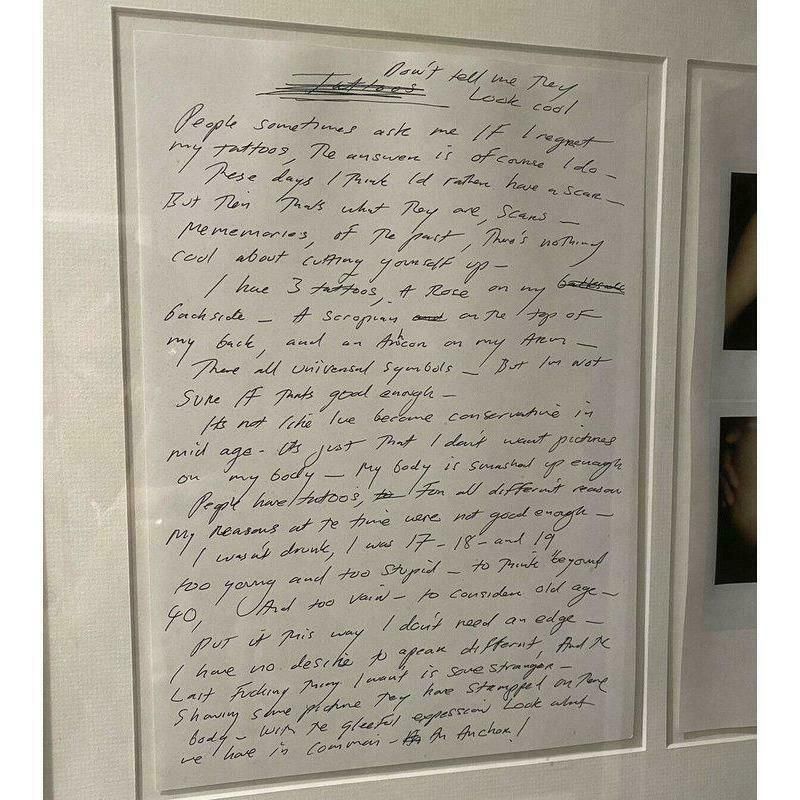 Don't tell me They
Tattoos Look cool
People sometimes ask me If I regret
my tattoos, The answer is of course I do -
These days I Think Id rather have a scar -
But Then Thats what They are, Scars -
Mememories, of The past, There's nothing
cool about cutting yourself up -
I have 3 tattoos, A Rose on my backside
backside - A Scropian and on the top of
my back, and an Ancor on my Arm -
There all universal symbols - But Im not
Sure If Thats good enough -
Its not like Ive become conservative in
mid age - Its just That I don't want pictures
on my body - My body is smashed up enough
People have tattoo's, to For all different reason
My reasons at te time were not good enough -
I wasn't drunk, I was 17 - 18 - and 19
too young and too stupid - to Think beyond
40, And too vain - to consider old age -
Put it This way I don't need an edge -
I have no desire to apear different, And te
Last Fucking Thing I want is some stranger -
Showing some picture They have stampped on There
body - with te gleeful expression Look what
we have in common - An An Anchor!